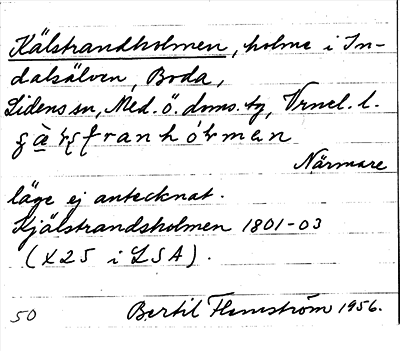 Kälstrandholmen, holme i In-
dalsälven, Boda,
Lidens sn, Med. ö. doms. tg, Vrncl. l.
Närmare
läge ej antecknat.
Kjälstrandsholmen 1801-03
(X25 i LSA).
50 Bertil Flemström 1956.